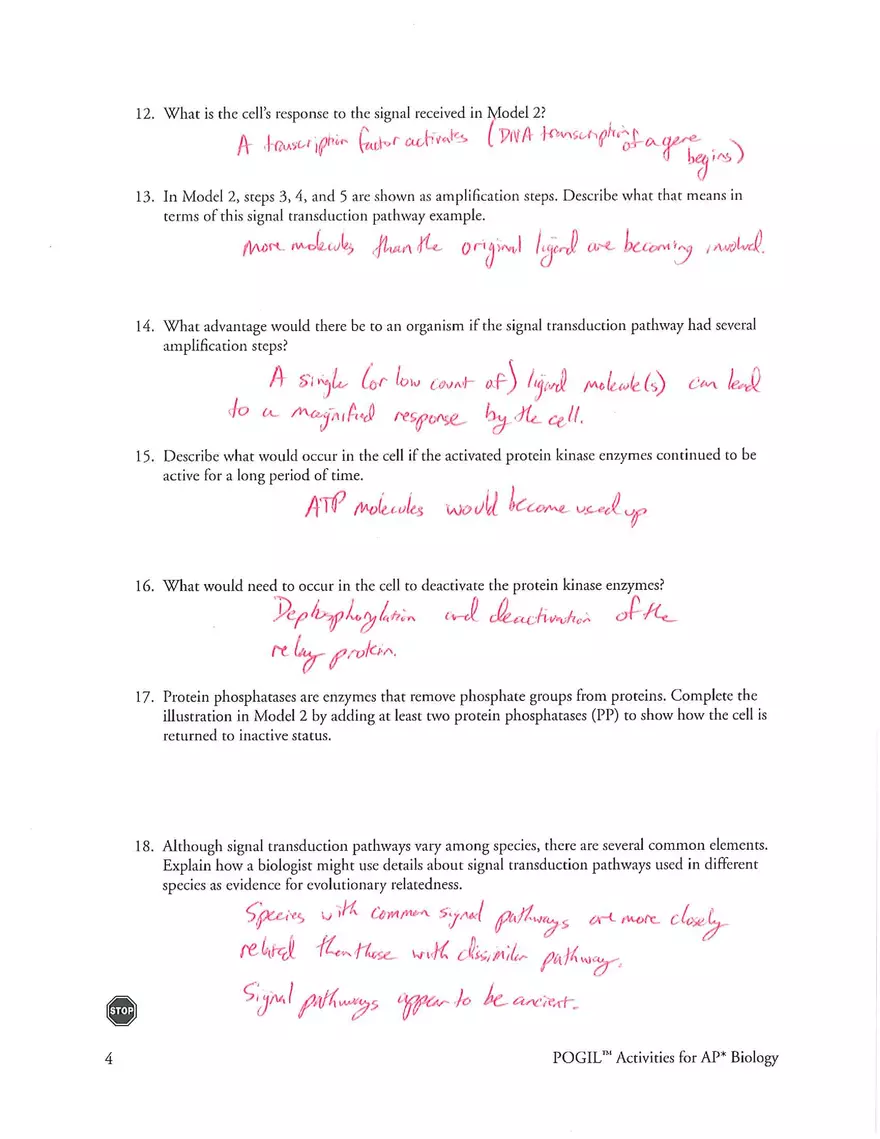 12. What is the cell's response to the signal received in Model 2?
A transcription factor activates (DNA transcription of a gene begins)
13. In Model 2, steps 3, 4, and 5 are shown as amplification steps. Describe what that means in
terms of this signal transduction pathway example.
More molecules than the original ligand are becoming involved.
14. What advantage would there be to an organism if the signal transduction pathway had several
amplification steps?
A single (or low count of) ligand molecule(s) can lead
to a magnified response by the cell.
15. Describe what would occur in the cell if the activated protein kinase enzymes continued to be
active for a long period of time.
ATP molecules would become used up
16. What would need to occur in the cell to deactivate the protein kinase enzymes?
Dephosphorylation and deactivation of the
relay protein.
17. Protein phosphatases are enzymes that remove phosphate groups from proteins. Complete the
illustration in Model 2 by adding at least two protein phosphatases (PP) to show how the cell is
returned to inactive status.
18. Although signal transduction pathways vary among species, there are several common elements.
Explain how a biologist might use details about signal transduction pathways used in different
species as evidence for evolutionary relatedness.
Species with common signal pathways are more closely
related than those with dissimilar pathway.
Signal pathways appear to be ancient.
STOP
4 POGIL™ Activities for AP* Biology